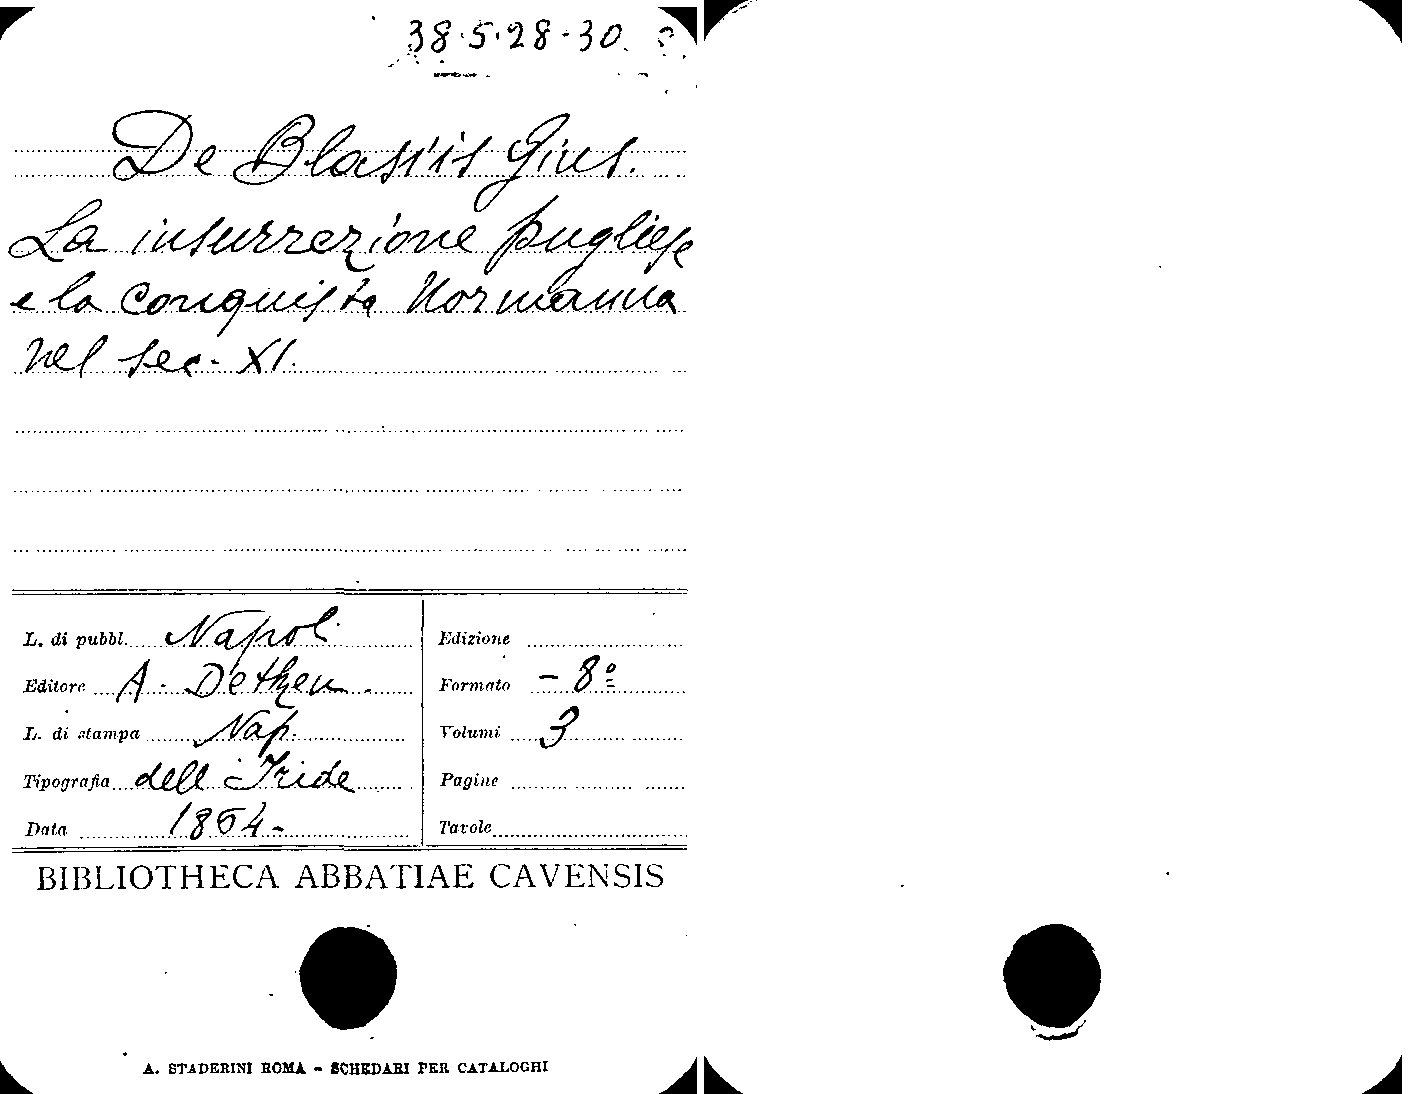 38.5.28-30.
De Blasiis Gius.
La insurrezione pugliese
e la conquista Normanna
nel sec. XI.
L. di pubbl. Napoli
Editore A. Dethen.
L. di stampa Nap.
Tipografia dell'Iride
Data 1864-
Edizione
Formato - 8º
Volumi 3
Pagine
Tavole
BIBLIOTHECA ABBATIAE CAVENSIS
A. STADERINI ROMA - SCHEDARI PER CATALOGHI